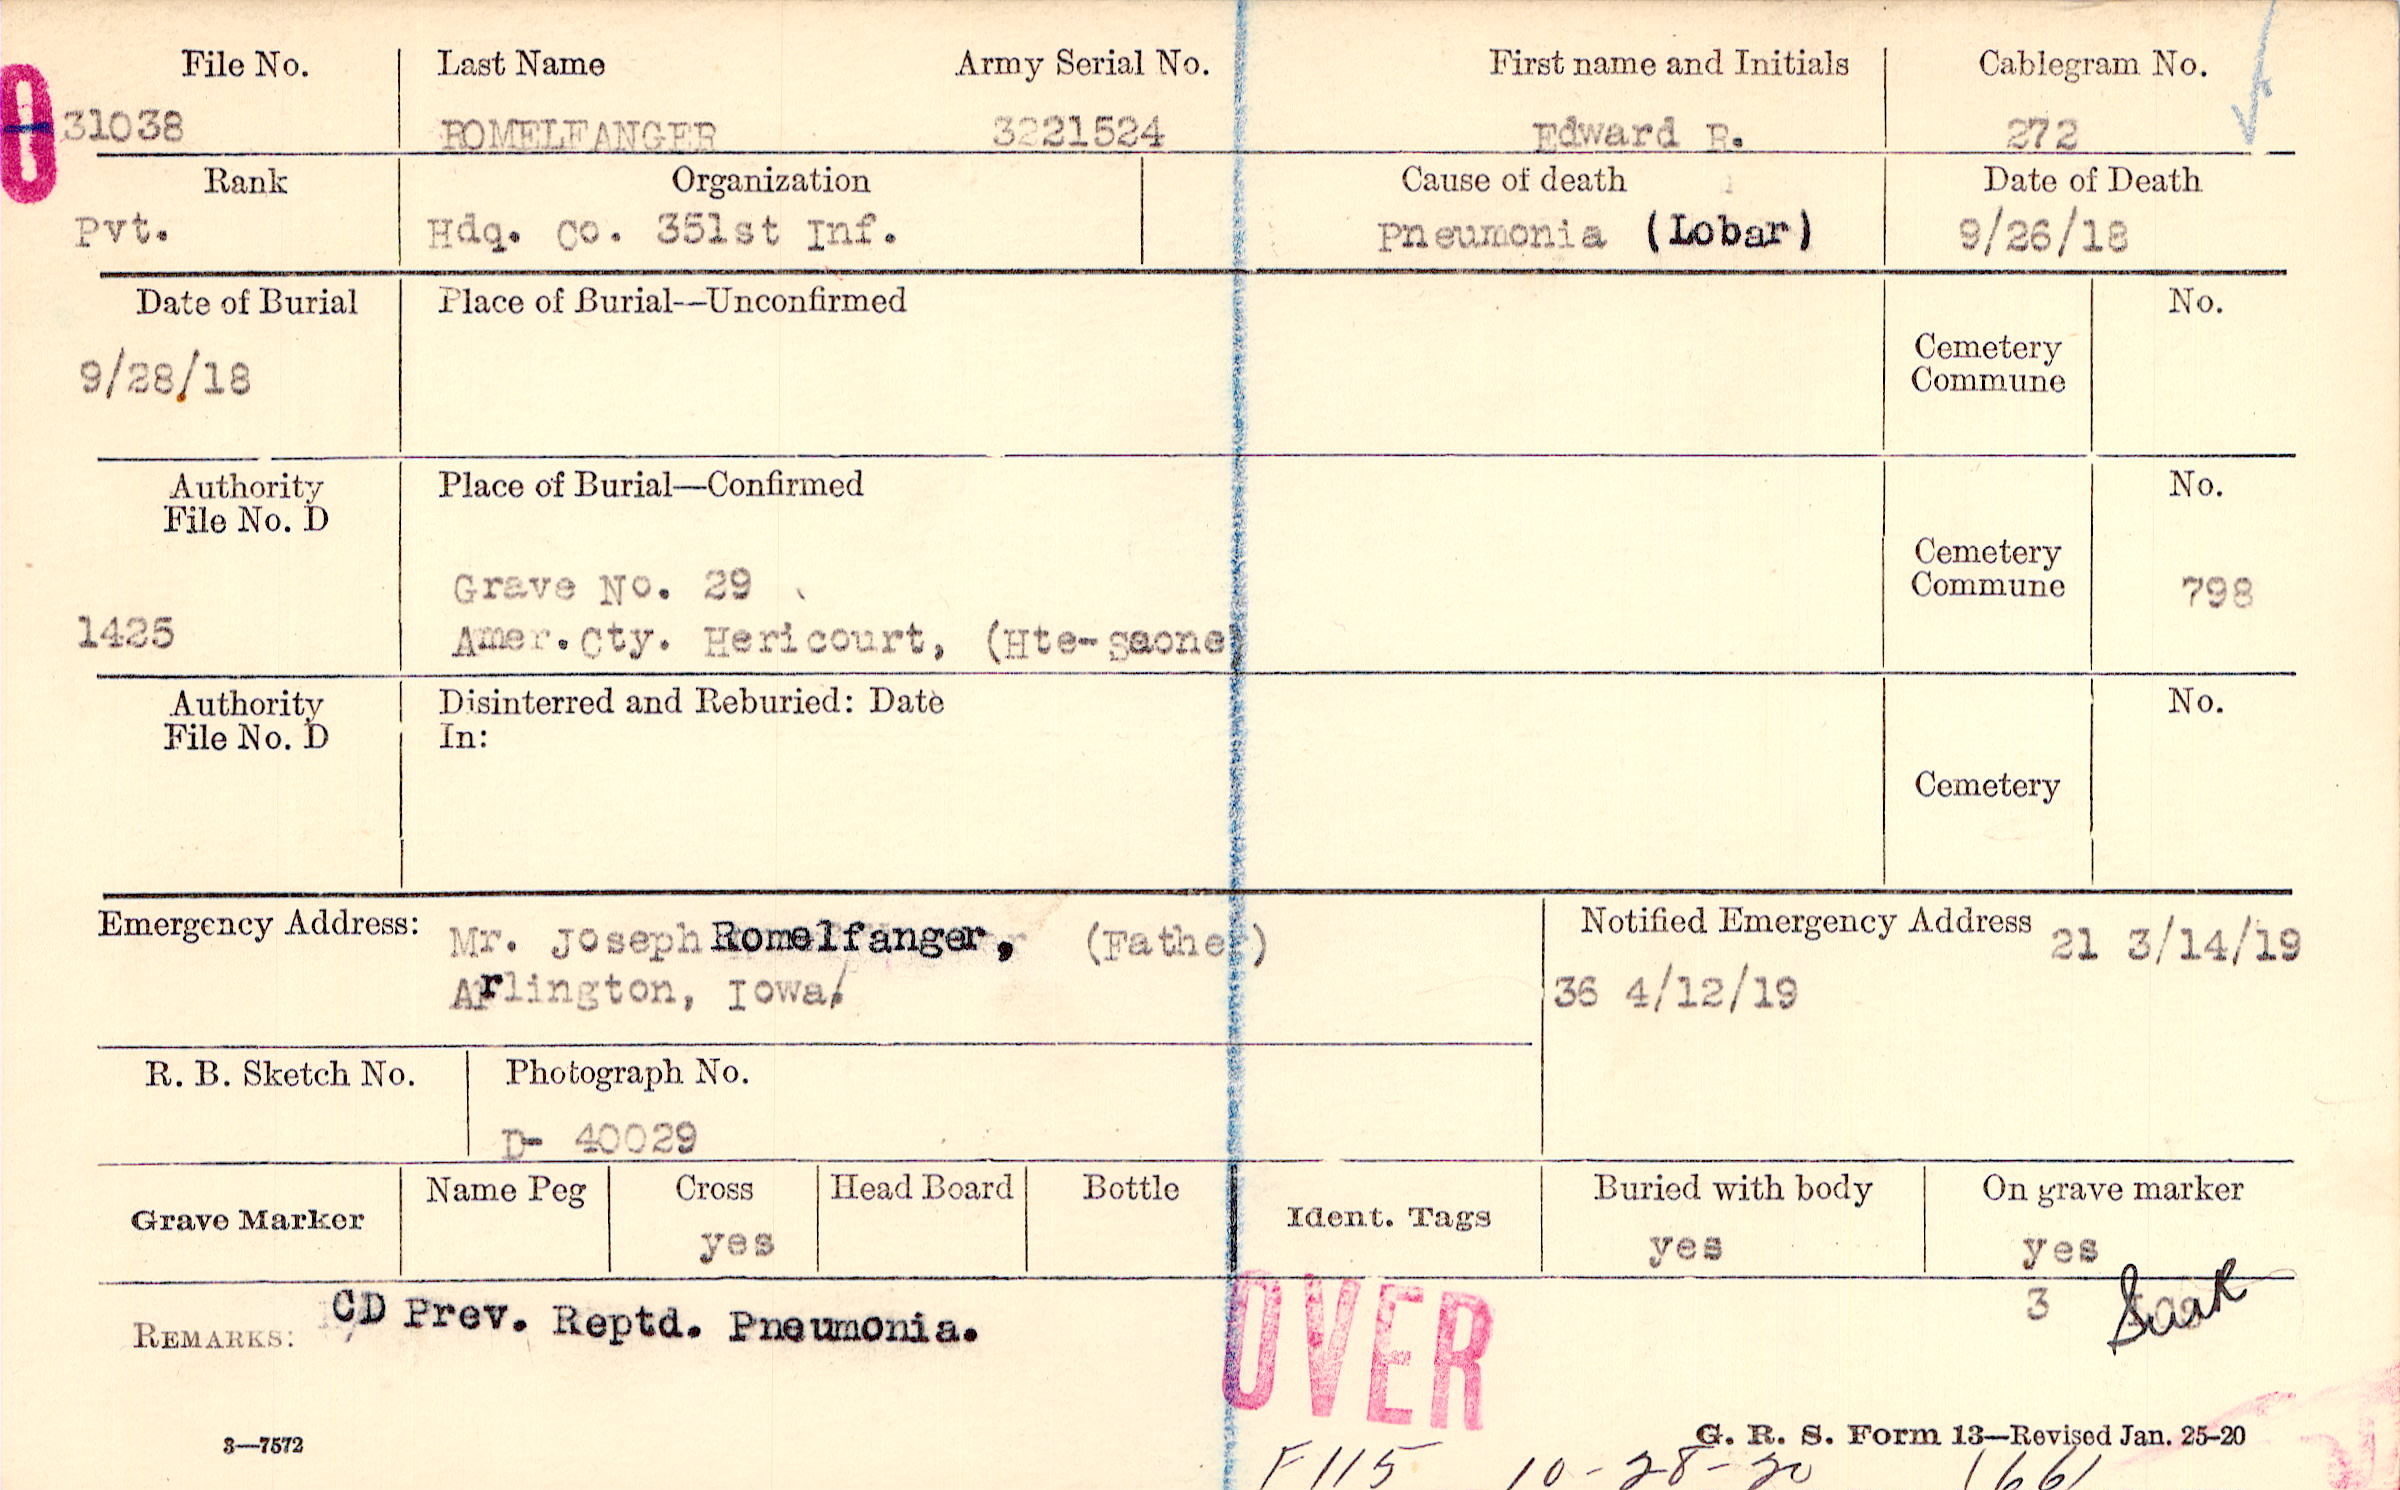 File No. Last Name Army Serial No. First name and Initials Cablegram No.
31038 ROMELFANGER 3221524 Edward R. 272
Rank Organization Cause of death Date of Death
Pvt. Hdq. Co. 351st Inf. Pneumonia (Lobar) 9/26/18
Date of Burial Place of Burial—Unconfirmed No.
Cemetery
Commune
9/28/18
Authority Place of Burial—Confirmed No.
File No. D
Cemetery
Commune 798
Grave No. 29
1425 Amer. Cty. Hericourt, (Hte-Saone)
Authority Disinterred and Reburied: Date No.
File No. D In:
Cemetery
Emergency Address: Mr. Joseph Romelfanger, (Father) Notified Emergency Address 21 3/14/19
Arlington, Iowa. 36 4/12/19
R. B. Sketch No. Photograph No.
D- 40029
Grave Marker Name Peg Cross Head Board Bottle Ident. Tags Buried with body On grave marker
yes yes yes
REMARKS: CD Prev. Reptd. Pneumonia. 3
OVER
3—7572 G. R. S. Form 13—Revised Jan. 25-20
F115 10-28-20 1661